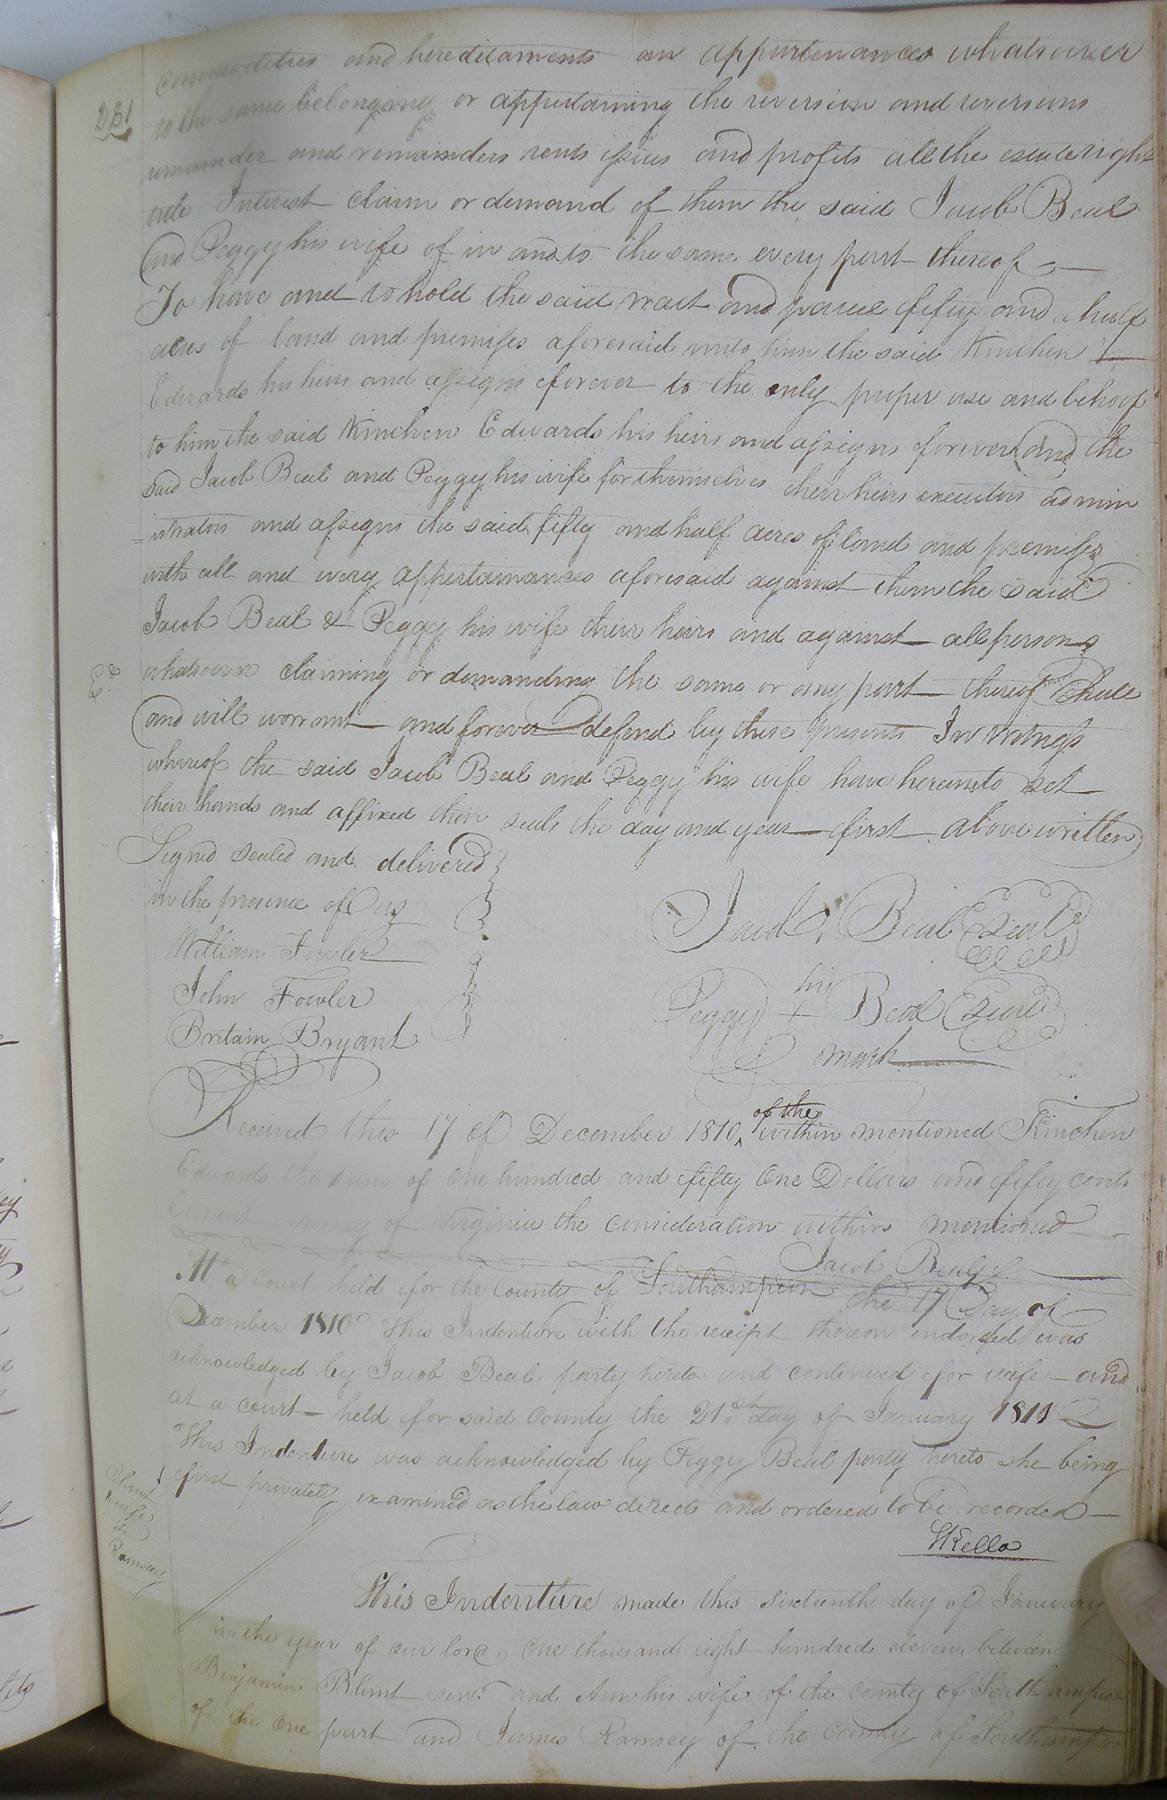 231
commodities and hereditaments an appurtenances whatsoever
to the same belonging or appertaining the reversion and reversions
remainder and remainders rents issues and profits all the estate right
title Interest claim or demand of them the said Jacob Beal
and Peggy his wife of in and to the same every part thereof
To have and to hold the said tract and parcel fifty and a half
acres of land and premises aforesaid unto him the said Kinchen
Edwards his heirs and assigns forever to the only proper use and behoof
to him the said Kinchen Edwards his heirs and assigns forever and the
said Jacob Beal and Peggy his wife for themselves their heirs executors admin
istrators and assigns the said fifty and half acres of land and premises
with all and every appertainances aforesaid against them the said
Jacob Beal & Peggy his wife their heirs and against all persons
whatsoever claiming or demanding the same or any part thereof shall
and will warrant and forever defend by these presents In Witness
whereof the said Jacob Beal and Peggy his wife have hereunto set
their hands and affixed their seals the day and year first above written
Signed sealed and delivered
in the presence of us
William Fowler
John Fowler
Britain Bryant
Jacob Beal Seal
his
Peggy + Beal Seal
mark
Received this 17 of December 1810 of the within mentioned Kinchen
Edwards the sum of one hundred and fifty One Dollars and fifty cents
Current money of Virginia the consideration within mentioned
Jacob Beal
At a Court held for the County of Southampton the 17 Day of
December 1810 This Indenture with the receipt thereon endorsed was
acknowledged by Jacob Beal party hereto and continued for wife and
at a court held for said County the 21st day of January 1811
This Indenture was acknowledged by Peggy Beal party hereto she being
first privately examined as the law directs and ordered to be recorded
Kello
Blunt
& wife
to
Ramsey
This Indenture made this sixteenth day of January
in the year of our lord One thousand eight hundred eleven between
Benjamin Blunt senr. and Ann his wife of the County of Southampton
of the one part and James Ramsey of the County of Southampton